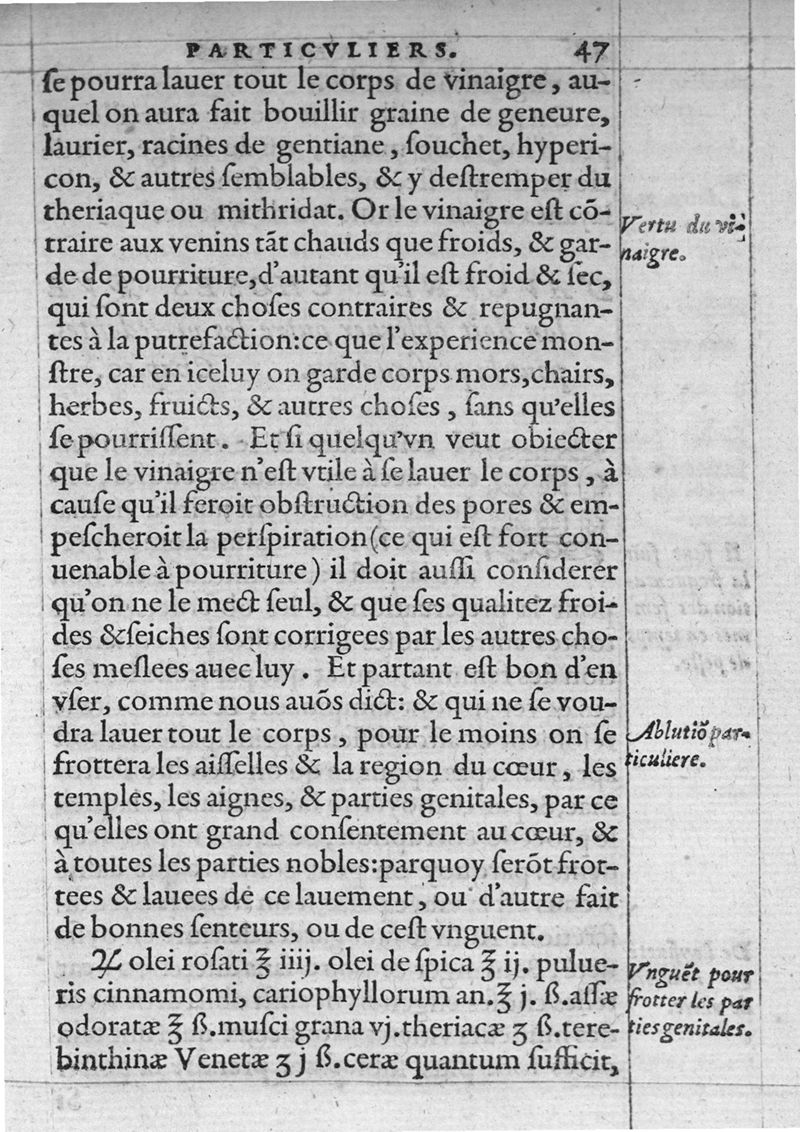 PARTICVLIERS. 47
ſe pourra lauer tout le corps de vinaigre, au-
quel on aura fait bouillir graine de geneure,
laurier, racines de gentiane, ſouchet, hyperi-
con, & autres ſemblables, & y deſtremper du
theriaque ou mithridat. Or le vinaigre eſt cõ-
traire aux venins tãt chauds que froids, & gar-
de de pourriture, d'autant qu'il eſt froid & ſec,
qui ſont deux choſes contraires & repugnan-
tes à la putrefaction: ce que l'experience mon-
ſtre, car en iceluy on garde corps mors, chairs,
herbes, fruicts, & autres choſes, ſans qu'elles
ſe pourriſſent. Et ſi quelqu'vn veut obiecter
que le vinaigre n'eſt vtile à ſe lauer le corps, à
cauſe qu'il feroit obſtruction des pores & em-
peſcheroit la perſpiration (ce qui eſt fort con-
uenable à pourriture) il doit auſſi conſiderer
qu'on ne le mect ſeul, & que ſes qualitez froi-
des & ſeiches ſont corrigees par les autres cho-
ſes meſlees auec luy. Et partant eſt bon d'en
vſer, comme nous auõs dict: & qui ne ſe vou-
dra lauer tout le corps, pour le moins on ſe
frottera les aiſſelles & la region du cœur, les
temples, les aignes, & parties genitales, par ce
qu'elles ont grand conſentement au cœur, &
à toutes les parties nobles: parquoy ſerõt frot-
tees & lauees de ce lauement, ou d'autre fait
de bonnes ſenteurs, ou de ceſt vnguent.
℞ olei roſati ℥ iiij. olei de ſpica ℥ ij. pulue-
ris cinnamomi, cariophyllorum an. ℥ j. ß. aſſæ
odoratæ ℥ ß. muſci grana vj. theriacæ ʒ ß. tere-
binthinæ Venetæ ʒ j ß. ceræ quantum ſufficit,
Vertu du vi-
naigre.
Ablutiõ par-
ticuliere.
Vnguẽt pour
frotter les par
ties genitales.